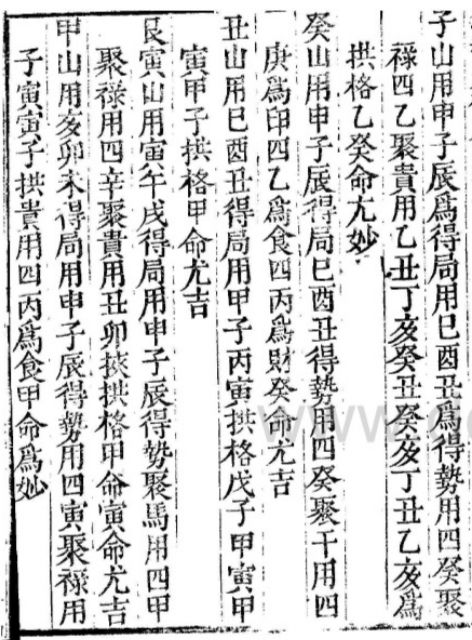 子山用申子辰爲得局用巳酉丑爲得勢用四癸聚
祿四乙聚貴用乙丑丁亥癸丑癸亥丁丑乙亥爲
拱格乙癸命尤妙
癸山用申子辰得局巳酉丑得勢用四癸聚干用四
庚爲印四乙爲食四丙爲財癸命尤吉
丑山用巳酉丑得局用甲子丙寅拱格戊子甲寅甲
寅甲子拱格甲命尤吉
艮寅山用寅午戌得局用申子辰得勢聚馬用四甲
聚祿用四辛聚貴用丑卯挾拱格甲命寅命尤吉
甲山用亥卯未得局用申子辰得勢用四寅聚祿用
子寅寅子拱貴用四丙爲食甲命爲妙